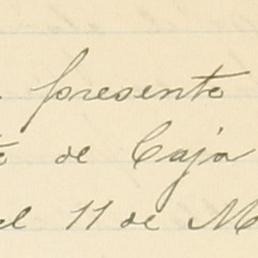 presento
de Caja
el 11 de M